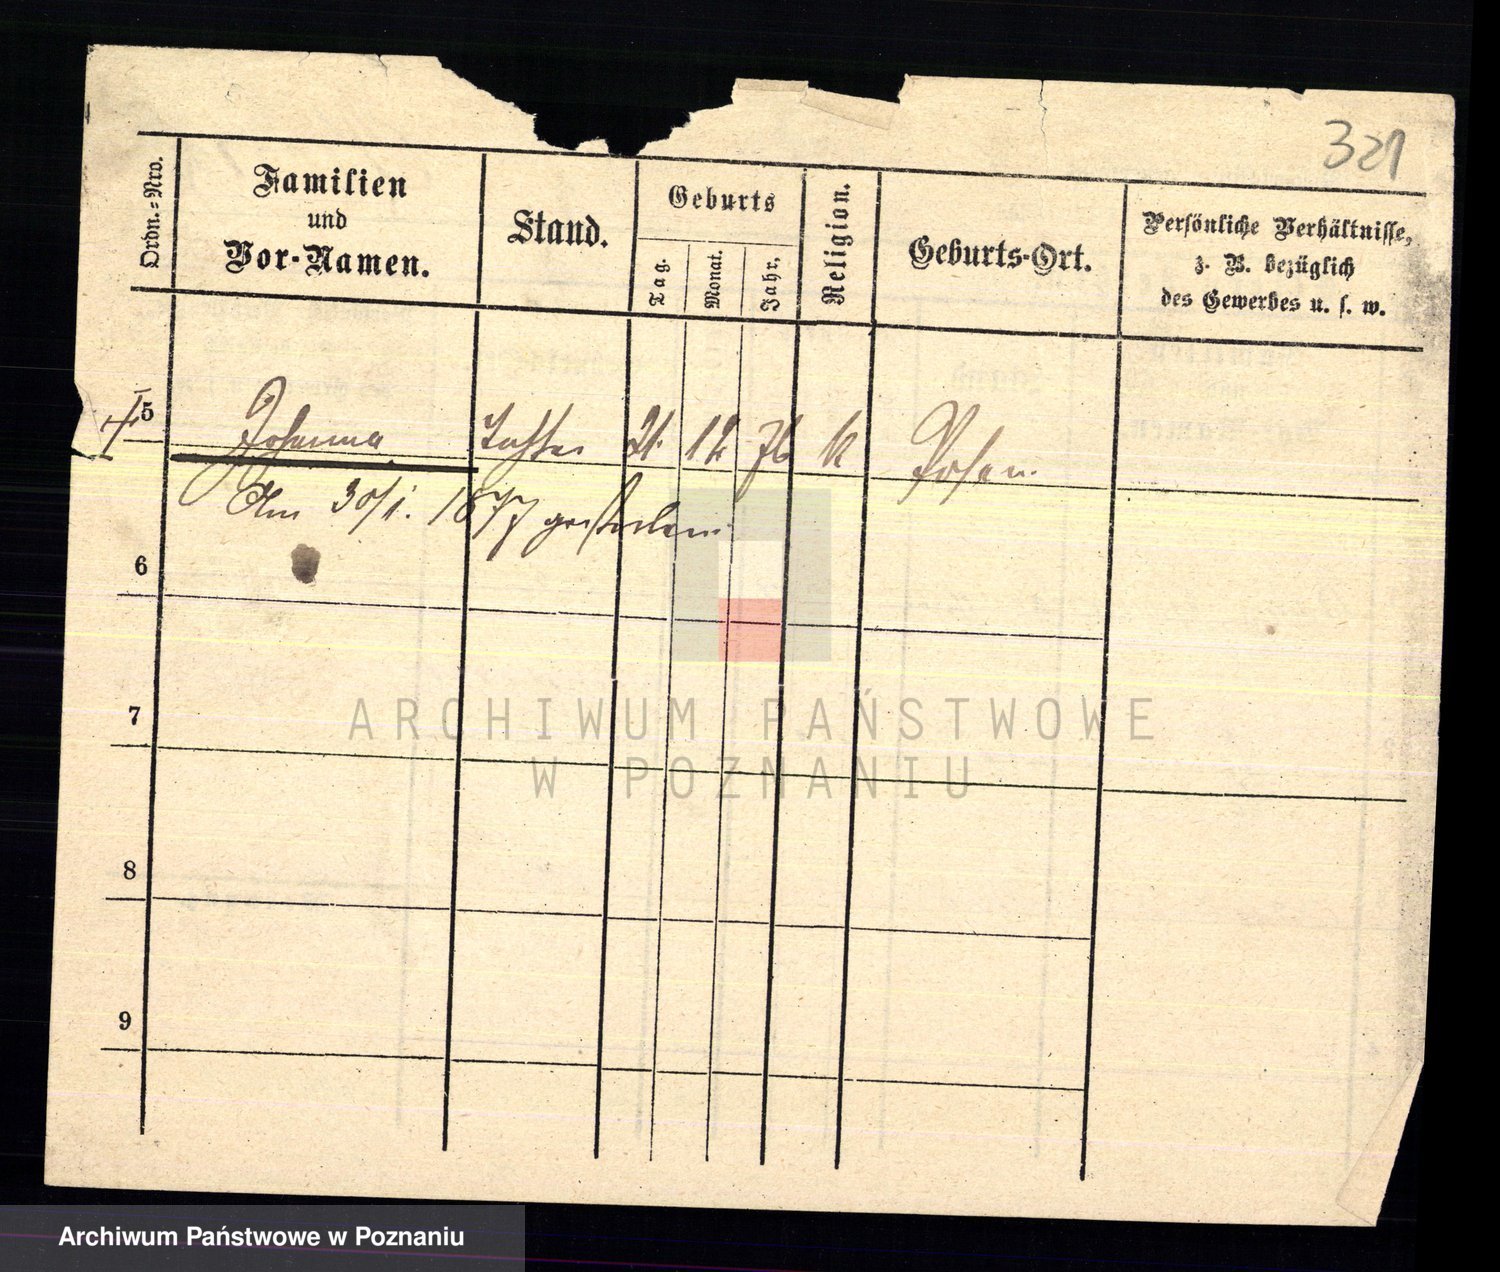 321
Ordn.-Nro.
Familien
und
Vor-Namen.
Stand.
Geburts
Tag.
Monat.
Jahr.
Religion.
Geburts-Ort.
Persönliche Verhältnisse,
z. B. bezüglich
des Gewerbes u. s. w.
5 Johanna Tochter 21. 12 76 k Posen.
Am 30/1. 1877 gestorben.
6
7
8
9
ARCHIWUM PAŃSTWOWE
W POZNANIU
Archiwum Państwowe w Poznaniu